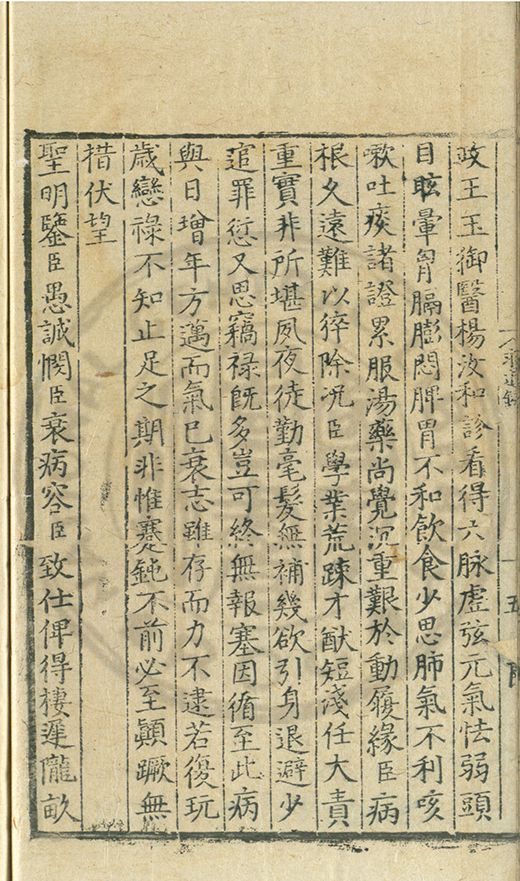 政王玉御醫楊汝和診看得六脉虛弦元氣怯弱頭
目眩暈胷膈膨悶脾胃不和飲食少思肺氣不利咳
嗽吐痰諸證累服湯藥尚覺沉重艱於動履緣臣病
根久遠難以猝除况臣學業荒踈才猷短淺任大責
重實非所堪夙夜徒勤毫髮無補幾欲引身退避少
逭罪愆又思竊祿旣多豈可終無報塞因循至此病
與日增年方邁而氣已衰志雖存而力不逮若復玩
歲戀祿不知止足之期非惟蹇鈍不前必至顛蹶無
措伏望
聖明鑒臣愚誠憫臣衰病容臣致仕俾得棲遲隴畝
十五